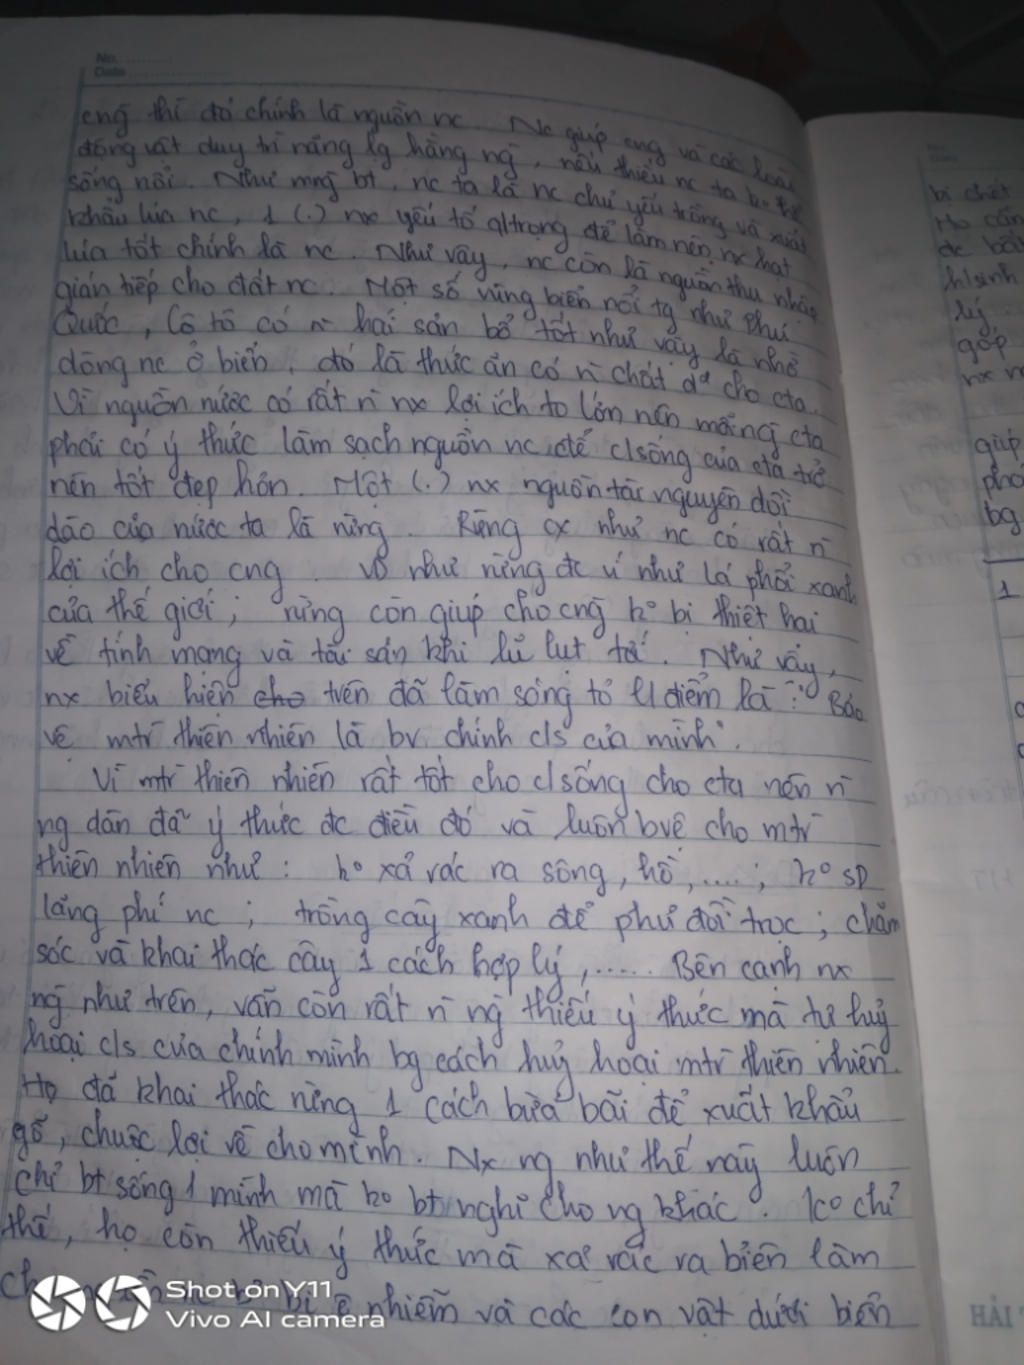 No.
Date
cng thì đó chính là nguồn nc. Nc giúp cng và các loài
động vật duy trì năng lg hằng ng, nếu thiếu nc ta ko thể
sống nổi. Như mng bt, nc ta là nc chủ yếu trồng và xuất
khẩu lúa nc, 1 (.) nx yếu tố qltrọng để làm nên nx hạt
lúa tốt chính là nc. Như vậy, nc còn là nguồn thu nhập
gián tiếp cho đất nc. Một số vùng biển nổi tg như Phú
Quốc, Cô tô có n̄ hải sản bổ tốt như vậy là nhờ
dòng nc ở biển, đó là thức ăn có n̄ chất d² cho cta.
Vì nguồn nước có rất n̄ nx lợi ích to lớn nên mỗi ng cta
phải có ý thức làm sạch nguồn nc để c/sống của cta trở
nên tốt đẹp hơn. Một (.) nx nguồn tài nguyên dồi
dào của nước ta là rừng. Rừng cx như nc có rất n̄
lợi ích cho cng. Vd như rừng đc ví như lá phổi xanh
của thế giới; rừng còn giúp cho cng ko bị thiệt hại
về tính mạng và tài sản khi lũ lụt tới. Như vậy,
nx biểu hiện cho trên đã làm sáng tỏ l/điểm là: "Bảo
vệ mtr thiên nhiên là bv chính c/s của mình".
Vì mtr thiên nhiên rất tốt cho c/sống cho cta nên n̄
ng dân đã ý thức đc điều đó và luôn bvệ cho mtr
thiên nhiên như: ko xả rác ra sông, hồ,....; ko sD
lãng phí nc; trồng cây xanh để phủ đồi trọc; chăm
sóc và khai thác cây 1 cách hợp lý,..... Bên cạnh nx
ng như trên, vẫn còn rất n̄ ng thiếu ý thức mà tự huỷ
hoại c/s của chính mình bg cách huỷ hoại mtr thiên nhiên.
Họ đã khai thác rừng 1 cách bừa bãi để xuất khẩu
gỗ, chuộc lợi về cho mình. Nx ng như thế này luôn
chỉ bt sống 1 mình mà ko bt nghĩ cho ng khác. Ko chỉ
thế, họ còn thiếu ý thức mà xả rác ra biển làm
bị ô nhiễm và các con vật dưới biển
bị chết
Họ cần
đc bảo
h/sinh
lý
góp
nx n
giúp
phò
bg
1
HẢI
Shot on Y11
Vivo AI camera